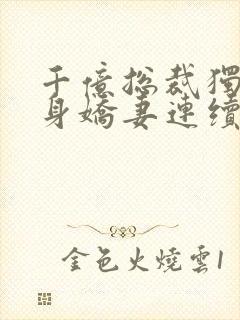 千億總裁獨
身嬌妻連續
金色火燒雲1